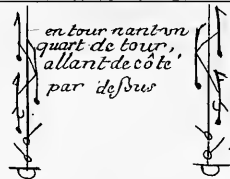 en tour nant un
quart de tour,
allant de côté
par deſsus